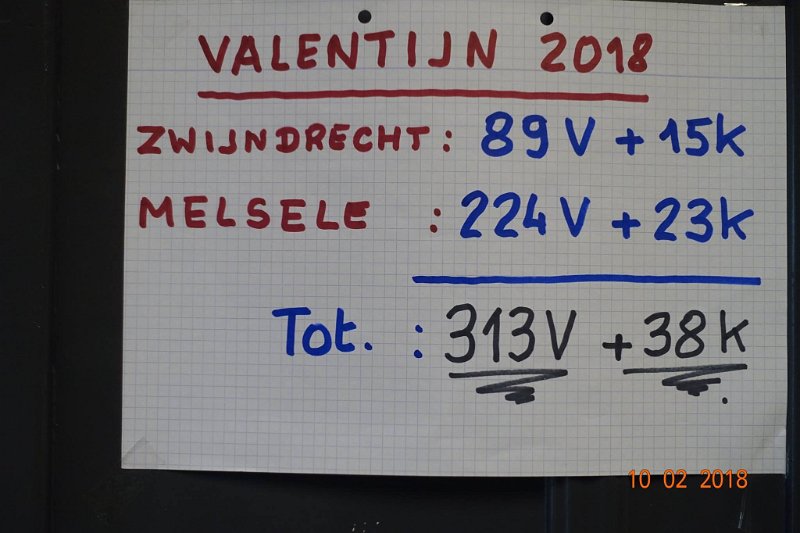 VALENTIJN 2018
ZWIJNDRECHT: 89V + 15k
MELSELE : 224V + 23k
Tot. : 313V + 38k.
10 02 2018